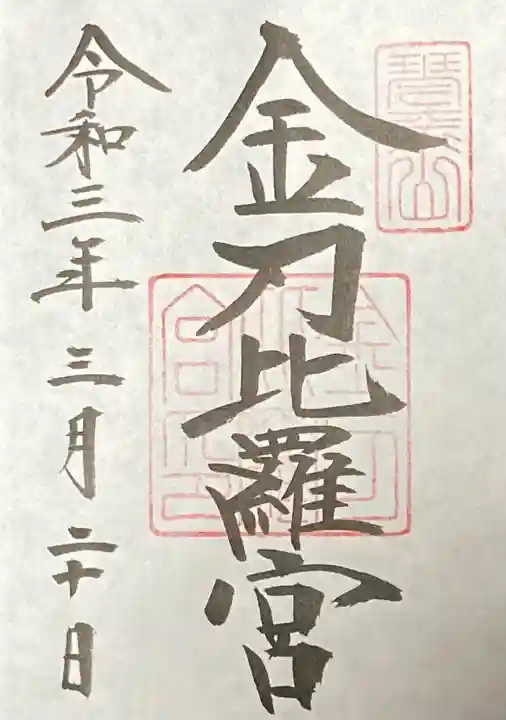 琴平山
金刀比羅宮
令和三年三月二十日